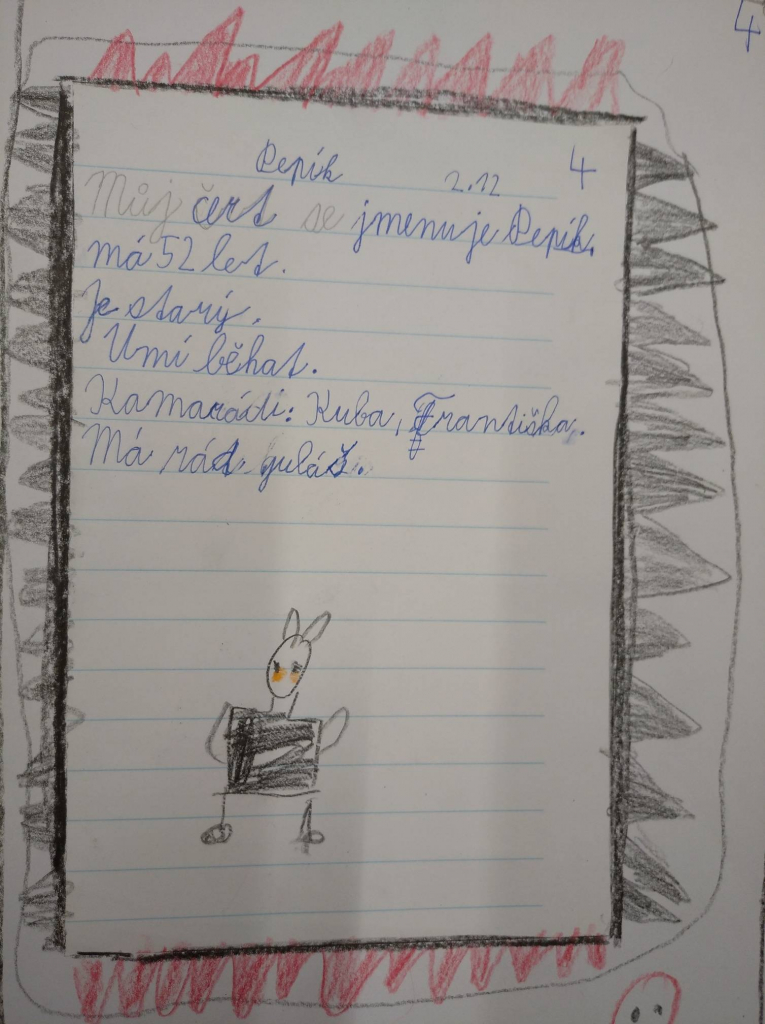 4
Pepík 2.12 4
Můj čert se jmenuje Pepík.
má 52 let.
Je starý.
Umí běhat.
Kamarádi: Kuba, Františka.
Má rád guláš.